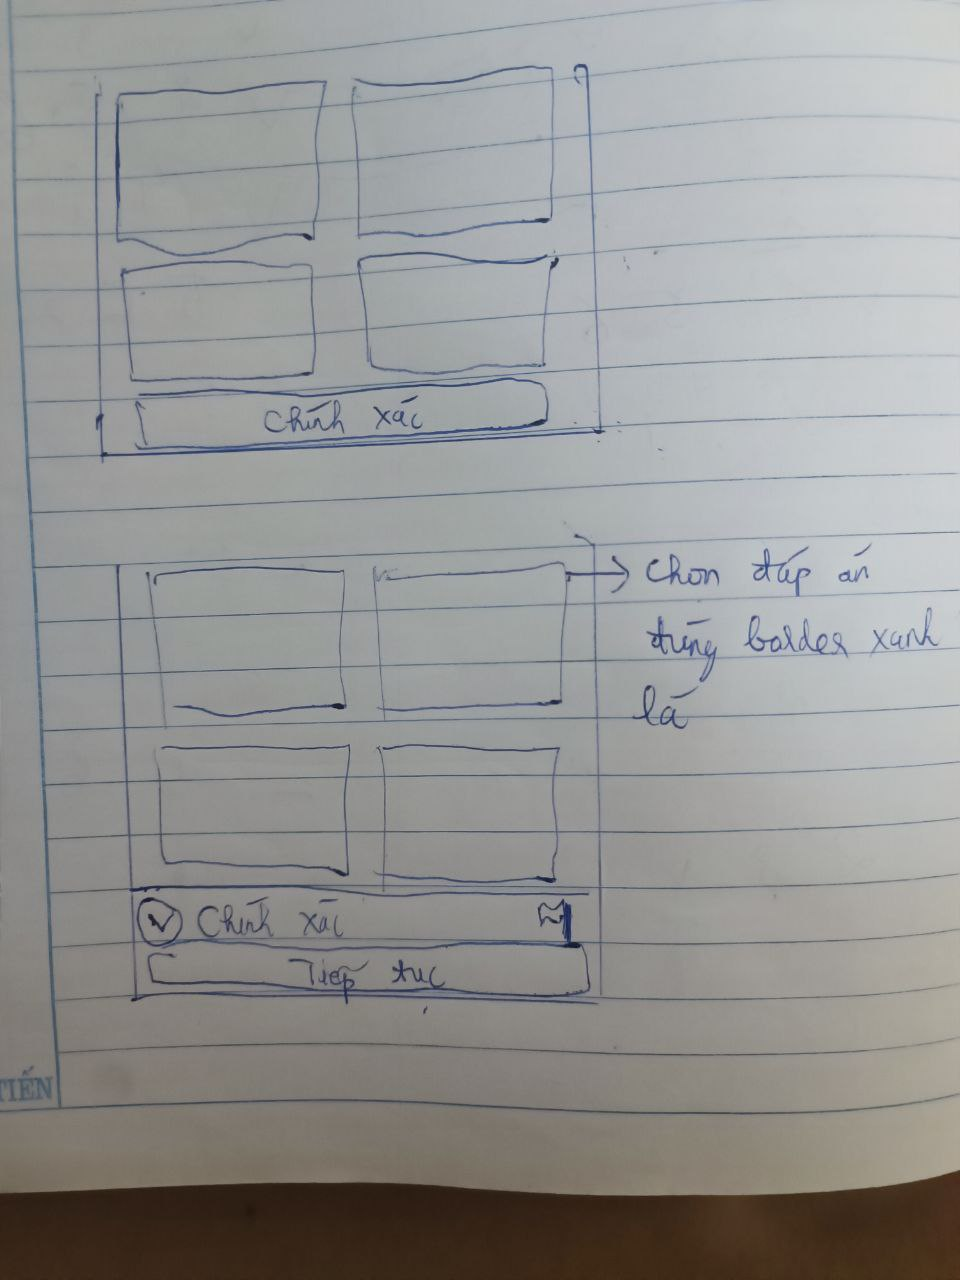 Chính xác
Chon đáp án
đúng border xanh
lá
Chính xác
Tiếp tục
TIẾN